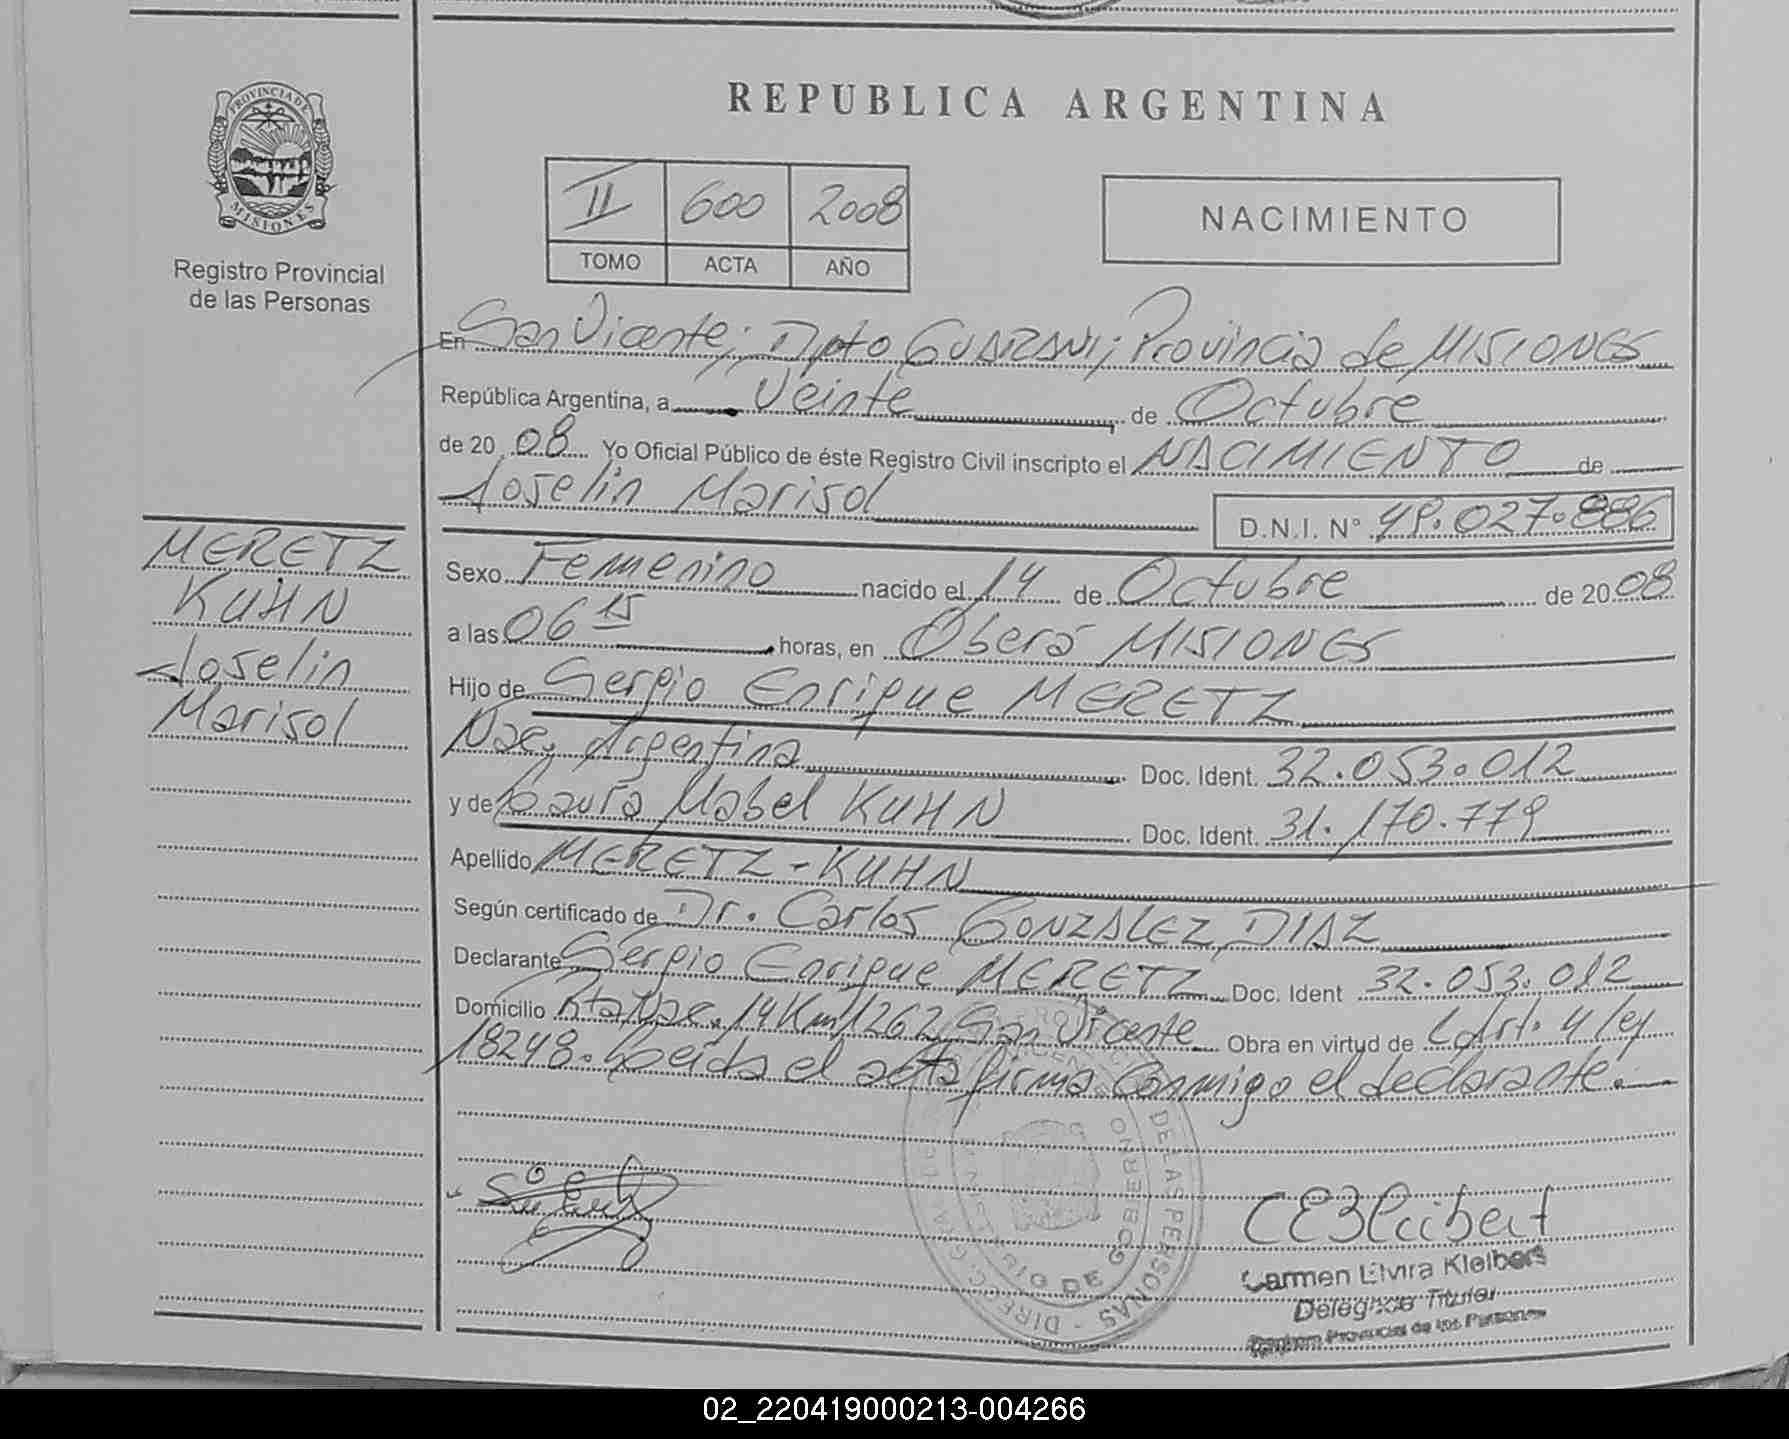 PROVINCIA DE
MISIONES
Registro Provincial
de las Personas
REPUBLICA ARGENTINA
II 600 2008
TOMO ACTA AÑO
NACIMIENTO
En San Vicente; Dpto GUARANI; Provincia de MISIONES
República Argentina, a Veinte de Octubre
de 20 08 Yo Oficial Público de éste Registro Civil inscripto el NACIMIENTO de
Joselin Marisol D.N.I. N° 49.027.886
MERETZ
KUHN
Joselin
Marisol
Sexo Femenino nacido el 14 de Octubre de 20 08
a las 06 15 horas, en Oberá MISIONES
Hijo de Sergio Enrique MERETZ
Nac. Argentina Doc. Ident. 32.053.012
y de Laura Mabel KUHN Doc. Ident. 31.170.779
Apellido MERETZ - KUHN
Según certificado de Dr. Carlos GONZALEZ DIAZ
Declarante Sergio Enrique MERETZ Doc. Ident 32.053.012
Domicilio Rta Nac. 14 Km 1262 San Vicente Obra en virtud de L Art. 4 ley
18248. Leida el acta firma conmigo el declarante.
DE LAS PERSONAS - DIREC. GRAL
MINISTERIO DE GOBIERNO
Carmen Elvira Kleibert
Delegada Titular
Registro Provincial de las Personas
02_220419000213-004266